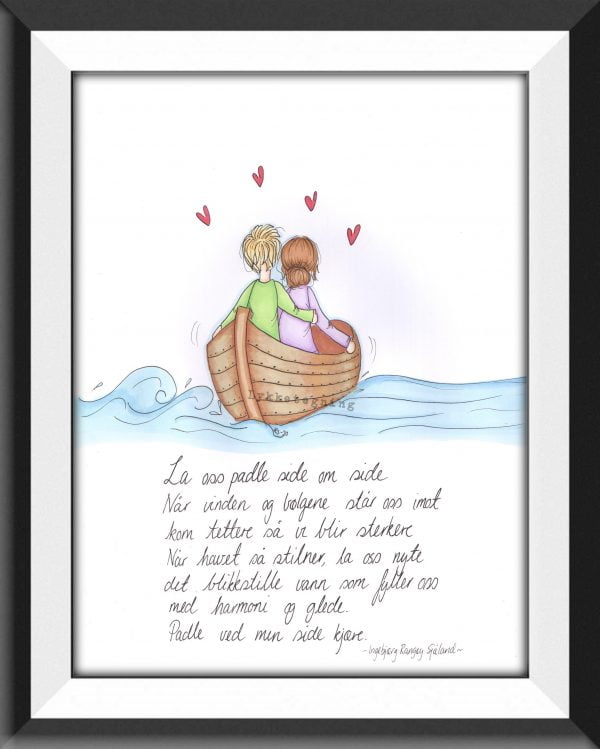 lykketegning
La oss padle side om side
Når vinden og bølgene står oss imot
kom tettere så vi blir sterkere
Når havet så stilner, la oss nyte
det blikkstille vann som fyller oss
med harmoni og glede.
Padle ved min side kjære.
~Ingebjørg Rangøy Sjøland~